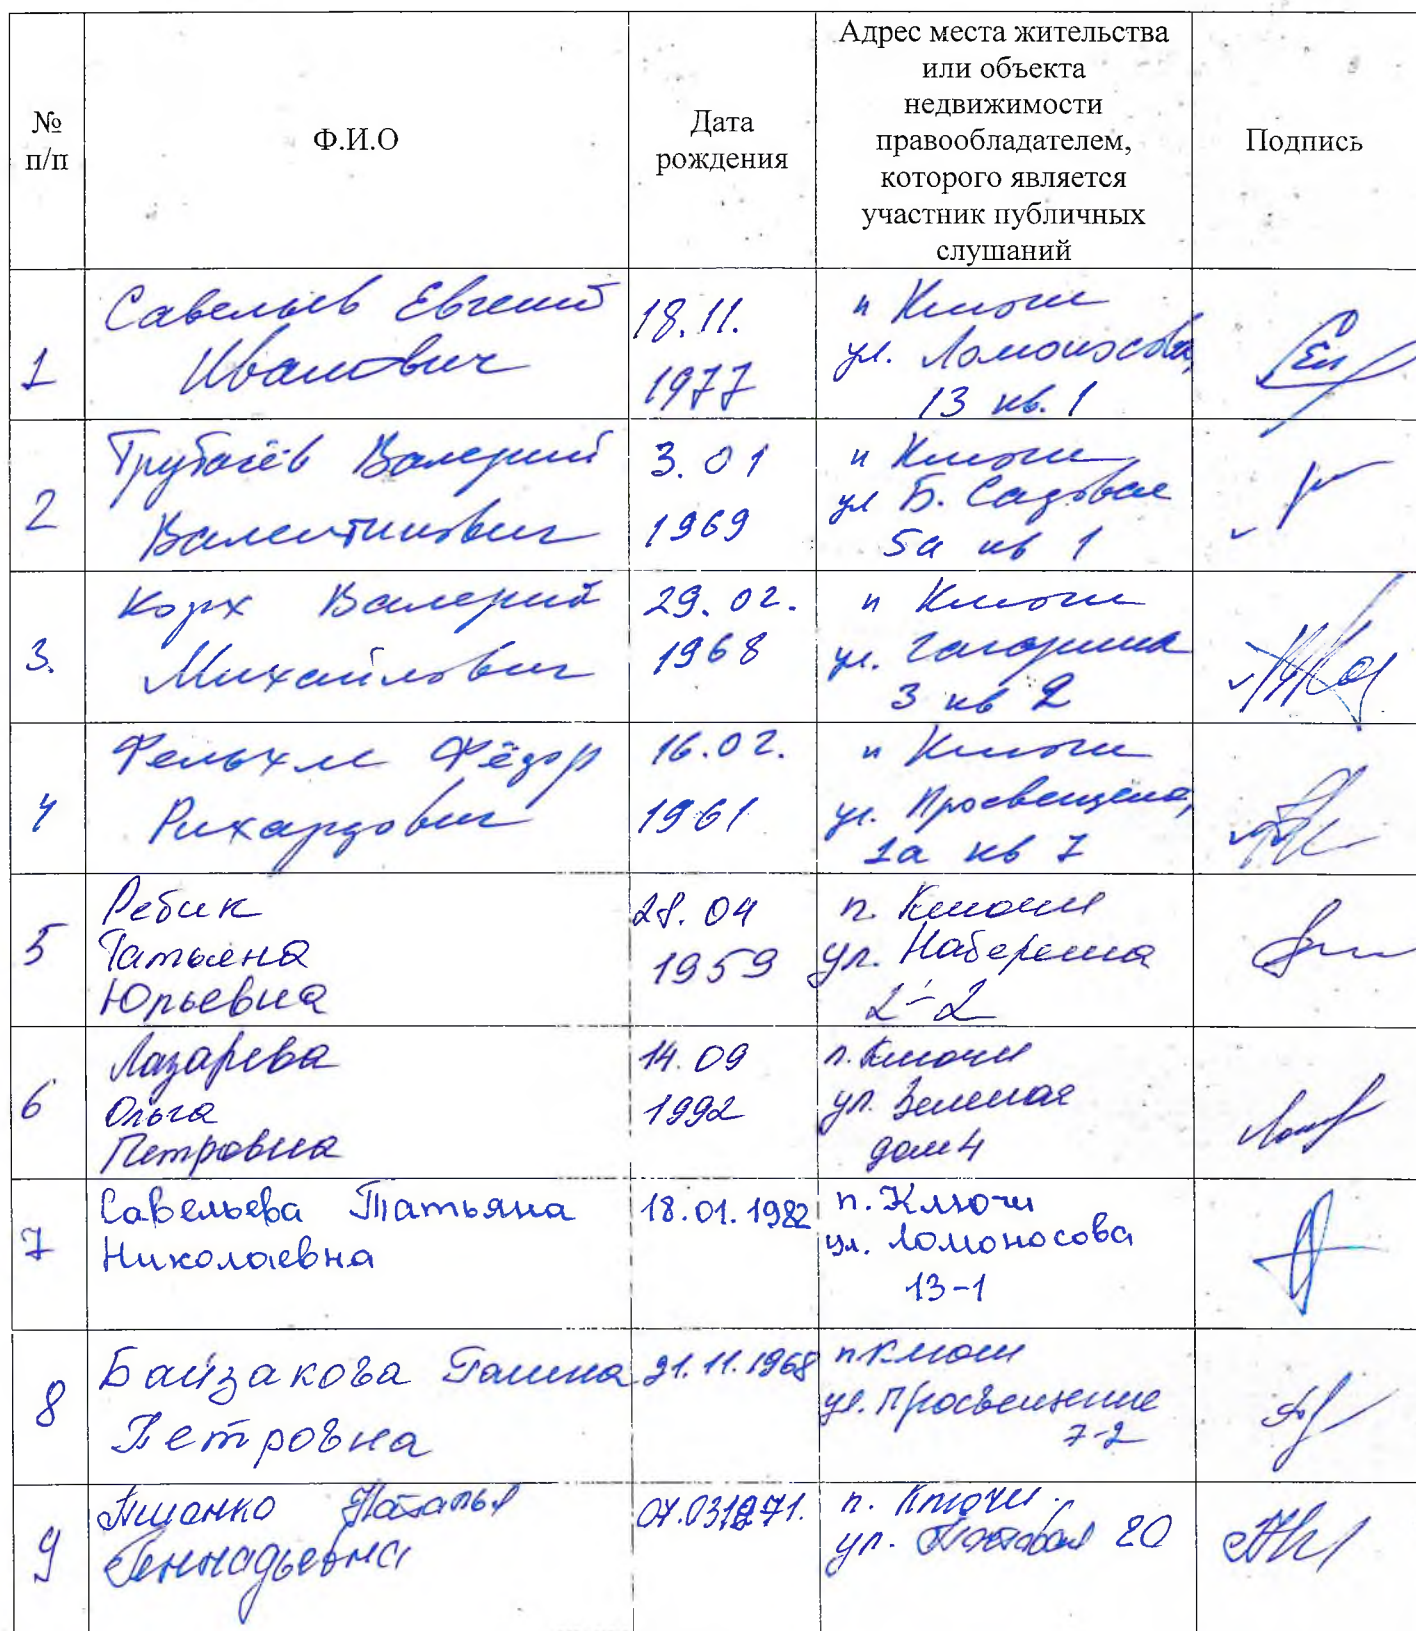 №
п/п
Ф.И.О
Дата
рождения
Адрес места жительства
или объекта
недвижимости
правообладателем,
которого является
участник публичных
слушаний
Подпись
1
Савельев Евгений
Иванович
18.11.
1977
п Ключи
ул. Ломоносова,
13 кв. 1
2
Трубачёв Валерий
Валентинович
3.01
1969
п Ключи
ул Б. Садовая
5а кв 1
3.
Корх Валерий
Михайлович
29.02.
1968
п Ключи
ул. Гагарина
3 кв 2
4
Фёдор
Рихардович
16.02.
1961
п Ключи
ул. Просвещения,
1а кв 7
5
Ребик
Татьяна
Юрьевна
28.04
1959
п. Ключи
ул. Набережна
2-2
6
Лазарева
Ольга
Петровна
14.09
1992
п. Ключи
ул. Зеленая
дом 4
7
Савельева Татьяна
Николаевна
18.01.1982
п. Ключи
ул. Ломоносова
13-1
8
Байзакова Галина
Петровна
21.11.1968
п Ключи
ул. Просвещение
7-2
9
Наталья
Геннадьевна
07.03.1971.
п. Ключи.
ул. 20